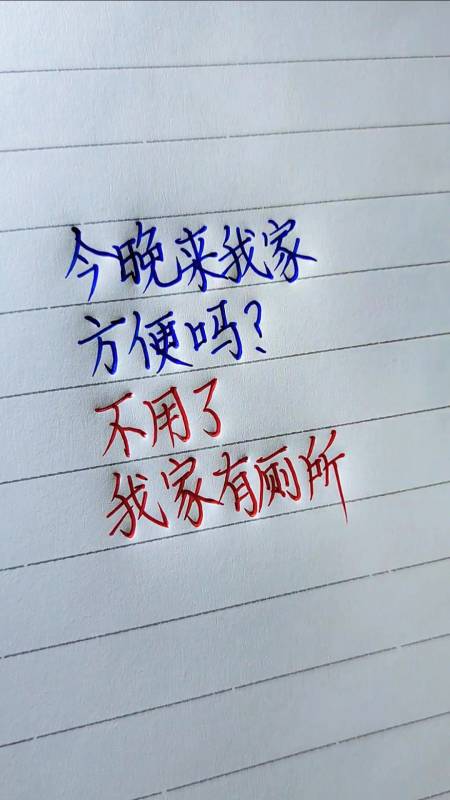 今晚来我家
方便吗?
不用了
我家有厕所